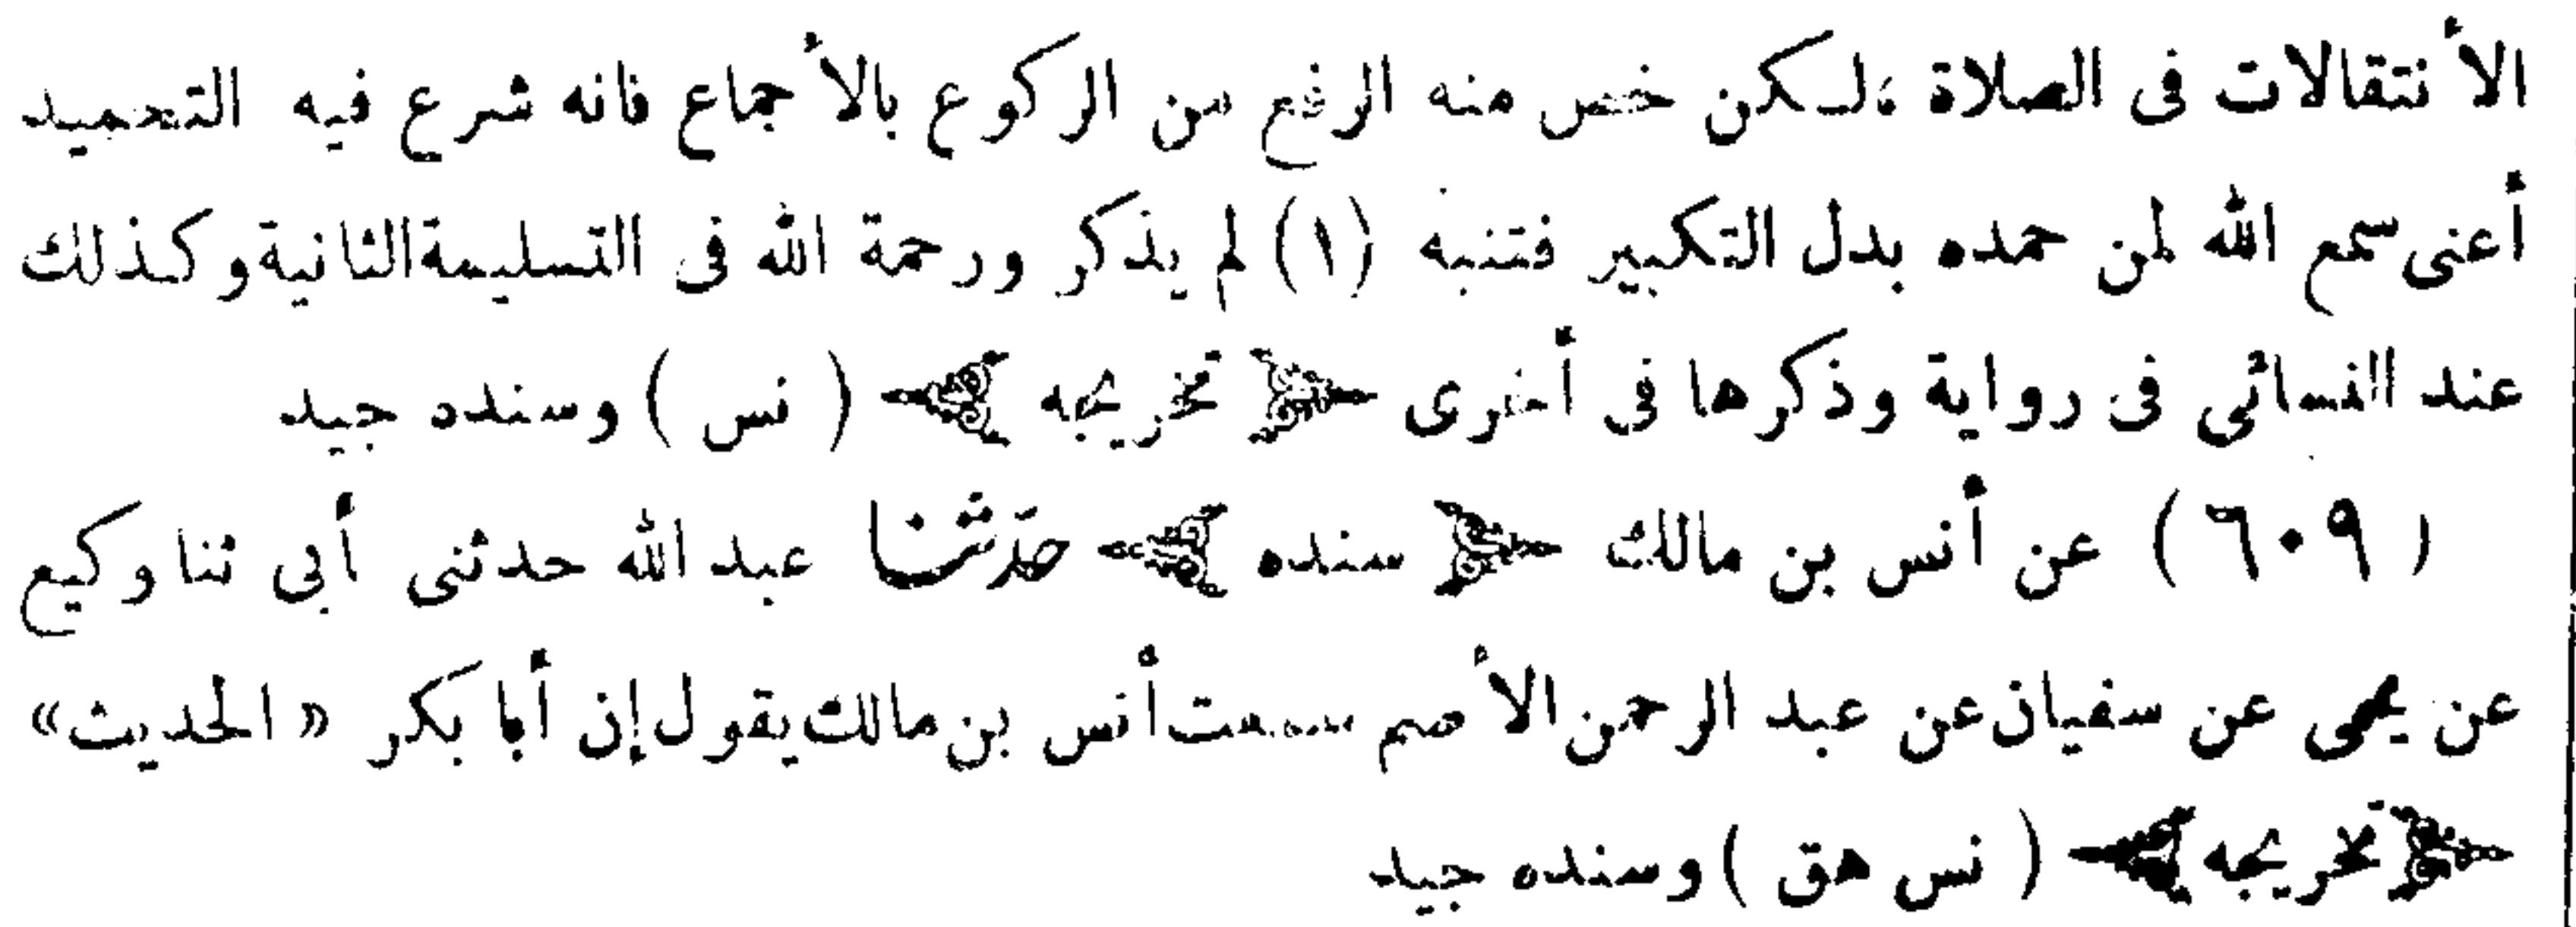 الأنتقالات فى الصلاة ،لكن خص منه الرفع من الركوع بالأجماع فانه شرع فيه التحميد
أعنى سمع الله لمن حمده بدل التكبير فتنبه (١) لم يذكر ورحمة الله فى التسليمة الثانية وكذلك
عند النسائى فى رواية وذكرها فى أخرى ﴿ تخريجه ﴾ ( نس ) وسنده جيد
( ٦٠٩ ) عن أنس بن مالك ﴿ سنده ﴾ حدّثنا عبد الله حدثنى أبى ثنا وكيع
عن يحيى عن سفيان عن عبد الرحمن الأصم سمعت أنس بن مالك يقول إن أبا بكر « الحديث»
﴿ تخريجه ﴾ ( نس هق ) وسنده جيد